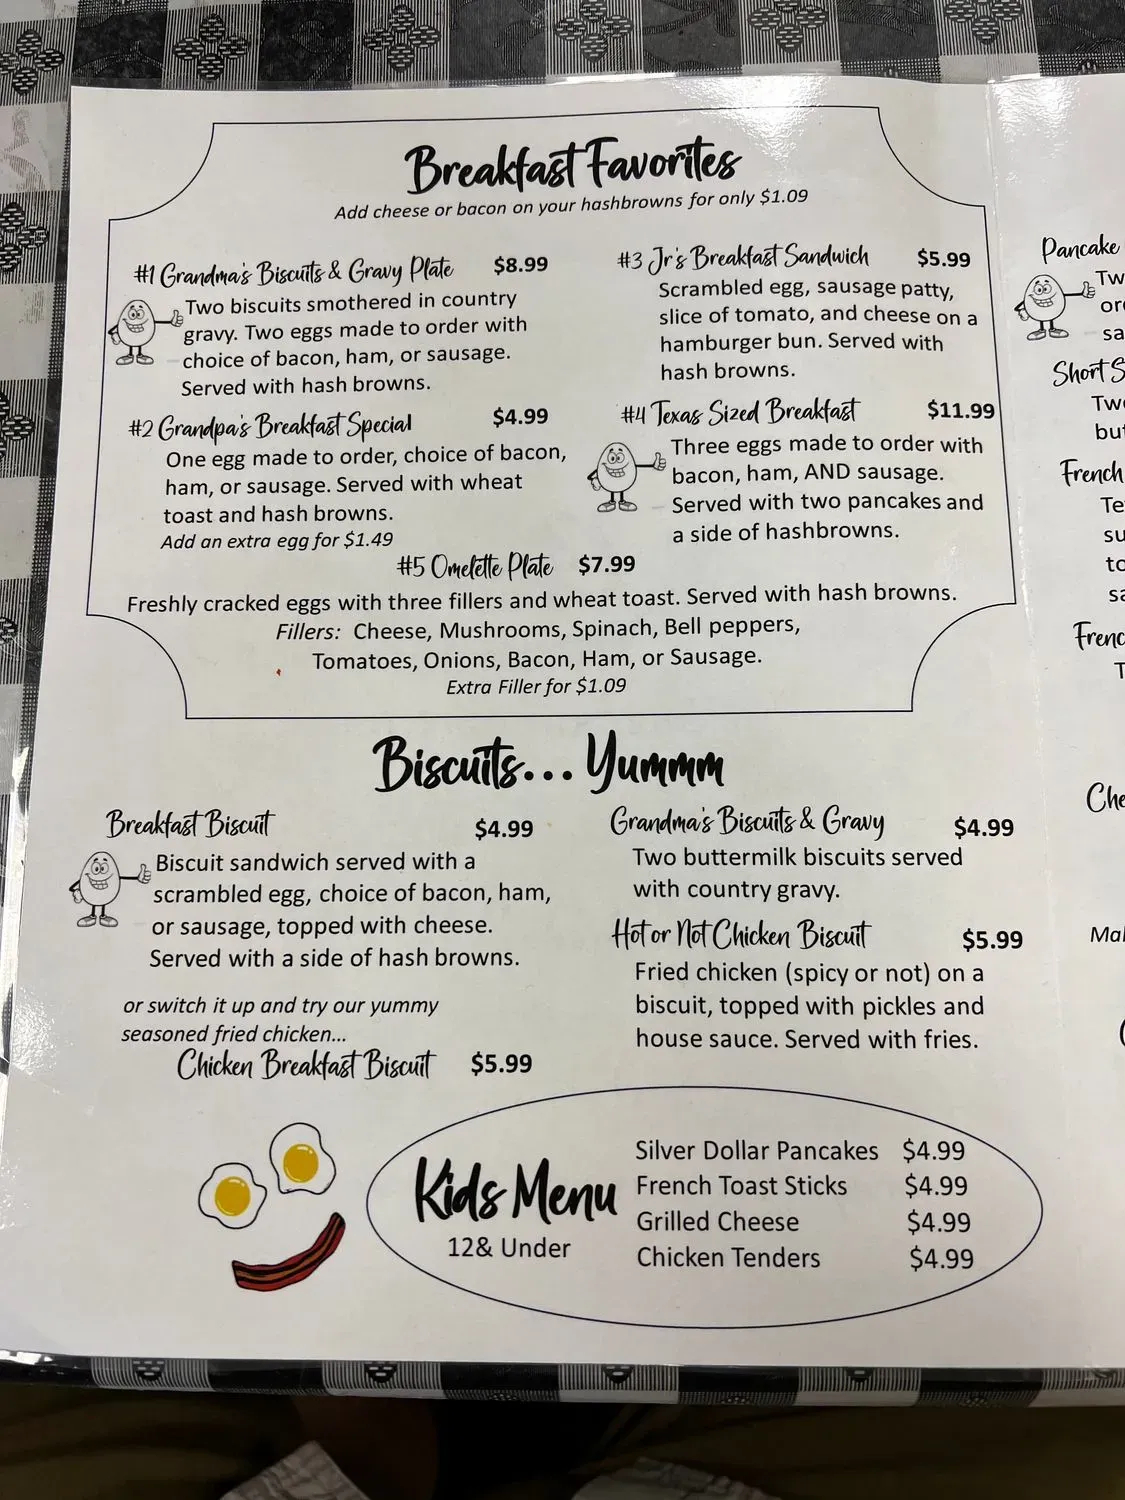 Breakfast Favorites
Add cheese or bacon on your hashbrowns for only $1.09
#1 Grandma's Biscuits & Gravy Plate $8.99
Two biscuits smothered in country
gravy. Two eggs made to order with
choice of bacon, ham, or sausage.
Served with hash browns.
#2 Grandpa's Breakfast Special $4.99
One egg made to order, choice of bacon,
ham, or sausage. Served with wheat
toast and hash browns.
Add an extra egg for $1.49
#3 Jr's Breakfast Sandwich $5.99
Scrambled egg, sausage patty,
slice of tomato, and cheese on a
hamburger bun. Served with
hash browns.
#4 Texas Sized Breakfast $11.99
Three eggs made to order with
bacon, ham, AND sausage.
Served with two pancakes and
a side of hashbrowns.
#5 Omelette Plate $7.99
Freshly cracked eggs with three fillers and wheat toast. Served with hash browns.
Fillers: Cheese, Mushrooms, Spinach, Bell peppers,
Tomatoes, Onions, Bacon, Ham, or Sausage.
Extra Filler for $1.09
Biscuits... Yummm
Breakfast Biscuit $4.99
Biscuit sandwich served with a
scrambled egg, choice of bacon, ham,
or sausage, topped with cheese.
Served with a side of hash browns.
or switch it up and try our yummy
seasoned fried chicken...
Chicken Breakfast Biscuit $5.99
Grandma's Biscuits & Gravy $4.99
Two buttermilk biscuits served
with country gravy.
Hot or Not Chicken Biscuit $5.99
Fried chicken (spicy or not) on a
biscuit, topped with pickles and
house sauce. Served with fries.
Kids Menu
12& Under
Silver Dollar Pancakes $4.99
French Toast Sticks $4.99
Grilled Cheese $4.99
Chicken Tenders $4.99
Pancake
Short S
French